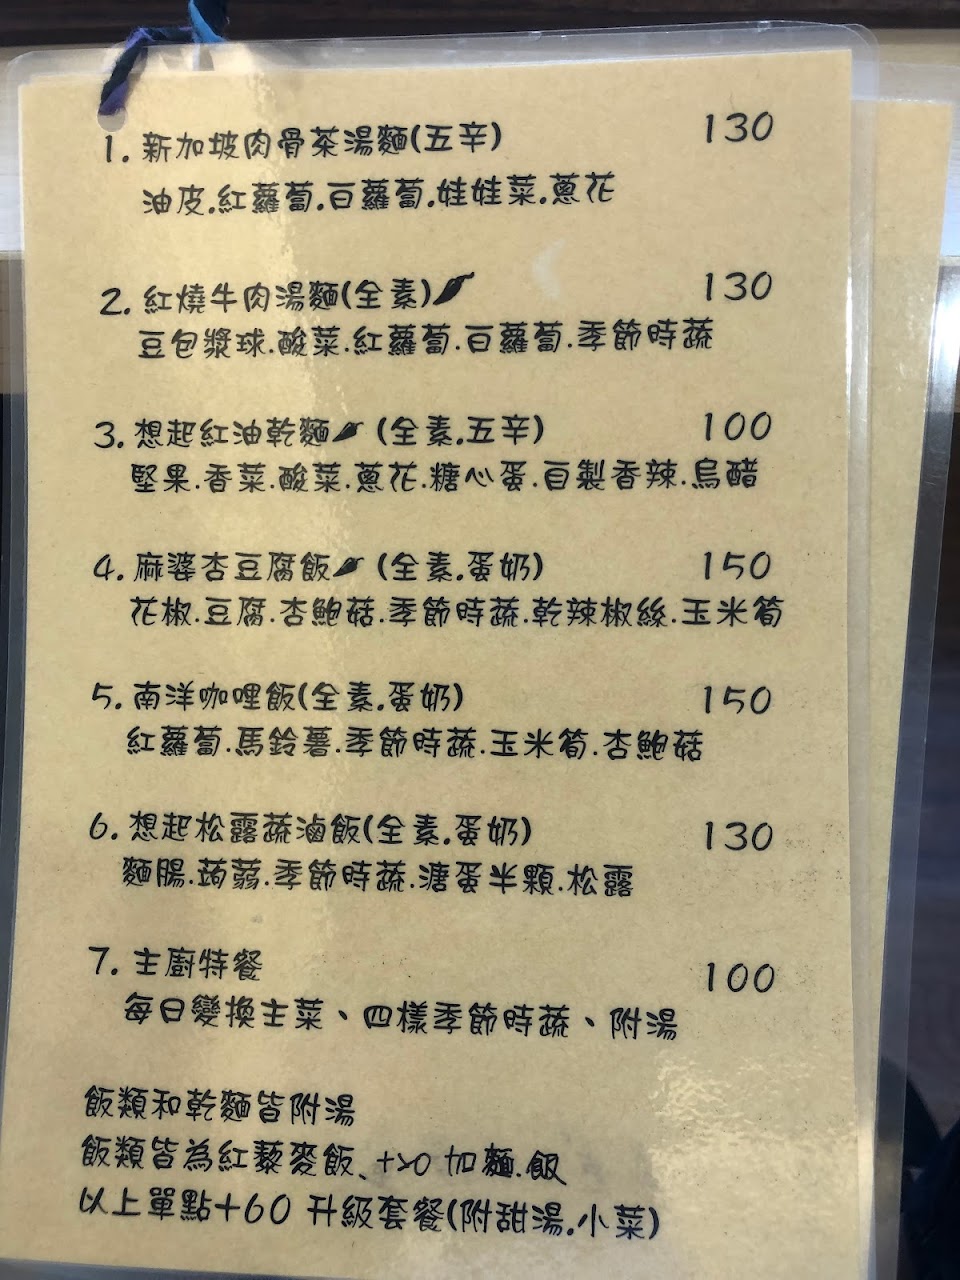 1. 新加坡肉骨茶湯麵(五辛) 130
油皮.紅蘿蔔.白蘿蔔.娃娃菜.蔥花
2. 紅燒牛肉湯麵(全素) 130
豆包漿球.酸菜.紅蘿蔔.白蘿蔔.季節時蔬
3. 想起紅油乾麵 (全素.五辛) 100
堅果.香菜.酸菜.蔥花.糖心蛋.自製香辣.烏醋
4. 麻婆杏豆腐飯 (全素.蛋奶) 150
花椒.豆腐.杏鮑菇.季節時蔬.乾辣椒絲.玉米筍
5. 南洋咖哩飯(全素.蛋奶) 150
紅蘿蔔.馬鈴薯.季節時蔬.玉米筍.杏鮑菇
6. 想起松露蔬滷飯(全素.蛋奶) 130
麵腸.蒟蒻.季節時蔬.溏蛋半顆.松露
7. 主廚特餐 100
每日變換主菜、四樣季節時蔬、附湯
飯類和乾麵皆附湯
飯類皆為紅藜麥飯、+20 加麵.飯
以上單點+60 升級套餐(附甜湯.小菜)